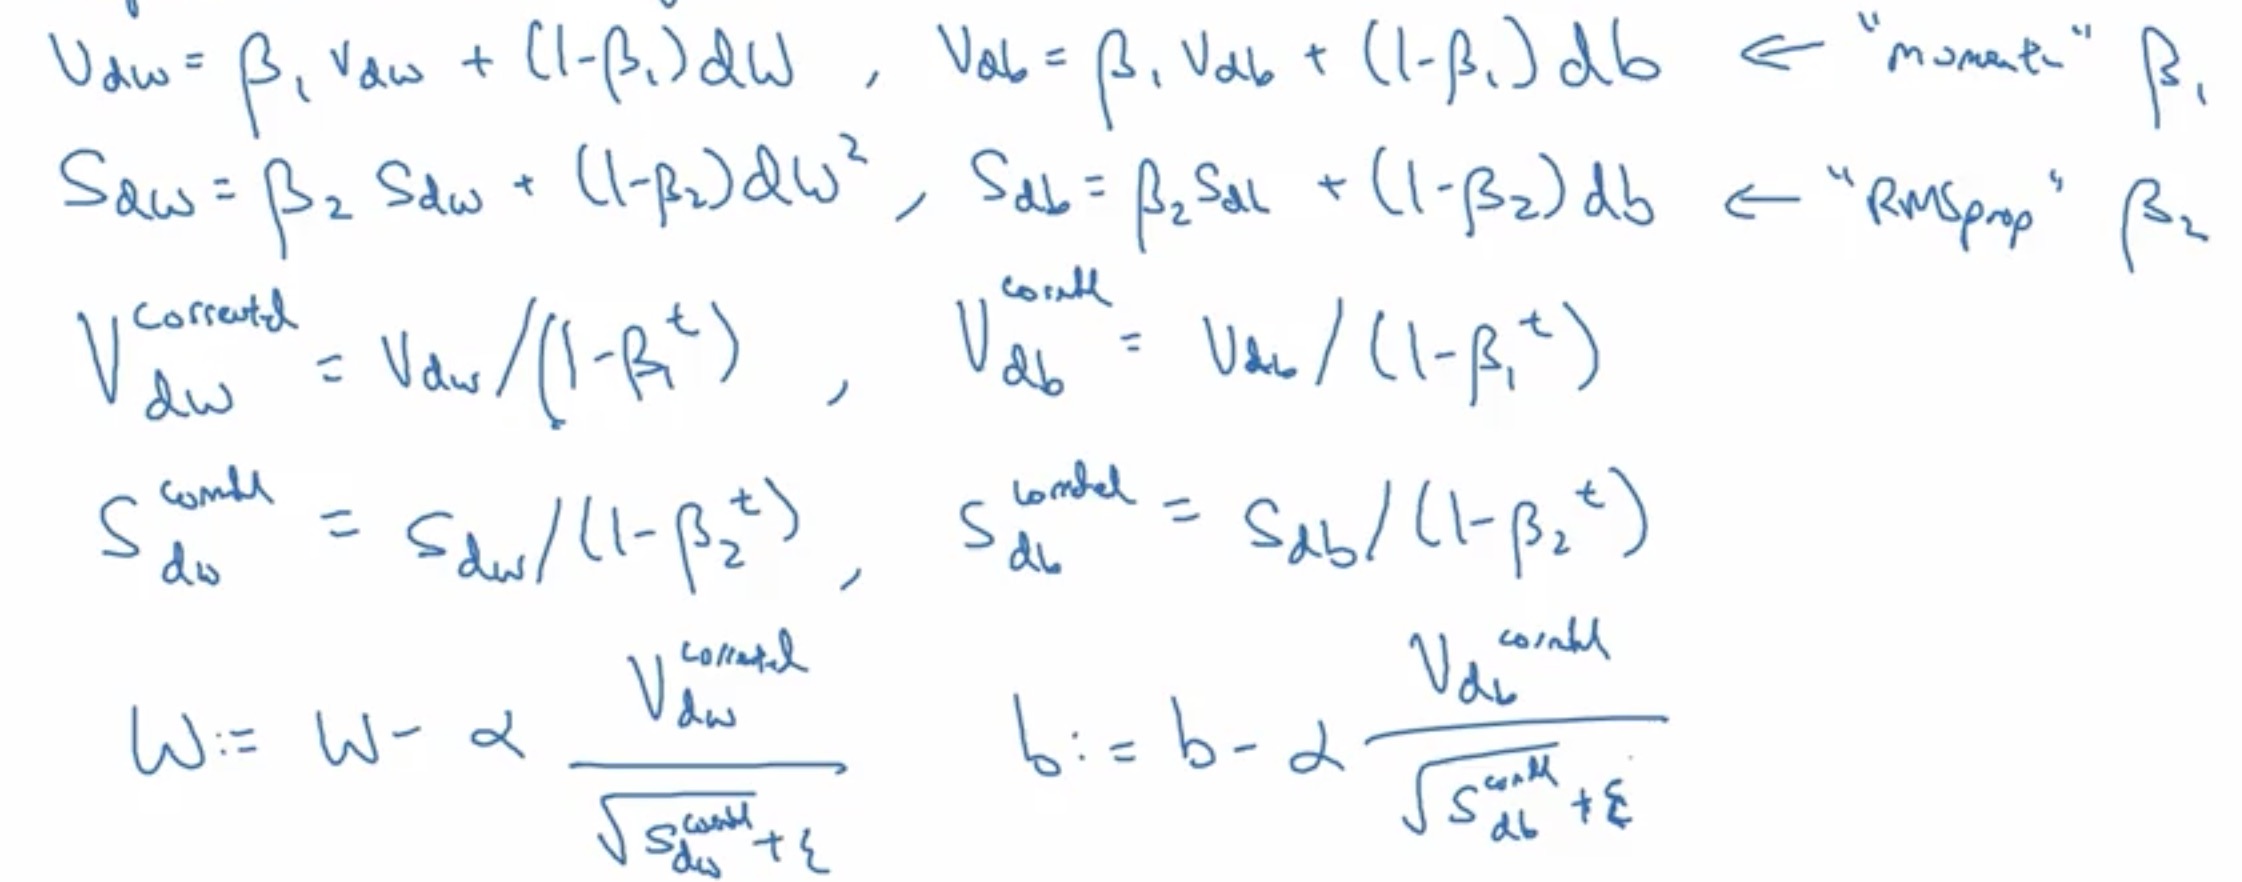 V_dw = β₁ V_dw + (1-β₁) dW , V_db = β₁ V_db + (1-β₁) db ← "moment" β₁
S_dw = β₂ S_dw + (1-β₂) dW² , S_db = β₂ S_db + (1-β₂) db ← "RMSprop" β₂
V_dw^corrected = V_dw / (1-β₁^t) , V_db^corrected = V_db / (1-β₁^t)
S_dw^corrected = S_dw / (1-β₂^t) , S_db^corrected = S_db / (1-β₂^t)
W := W - α V_dw^corrected / (√S_dw^corrected + ε) b := b - α V_db^corrected / (√S_db^corrected + ε)